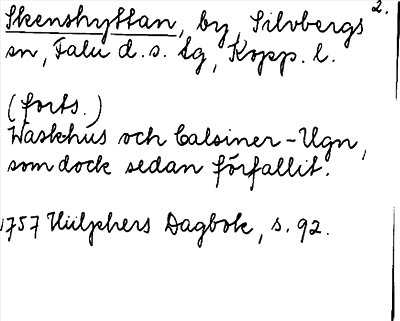 2.
Skenshyttan, by, Silvbergs
sn, Falu d. s. lg, Kopp. l.
(forts.)
Waskhus och Calsiner-Ugn,
som dock sedan förfallit.
1757 Hülphers Dagbok, s. 92.